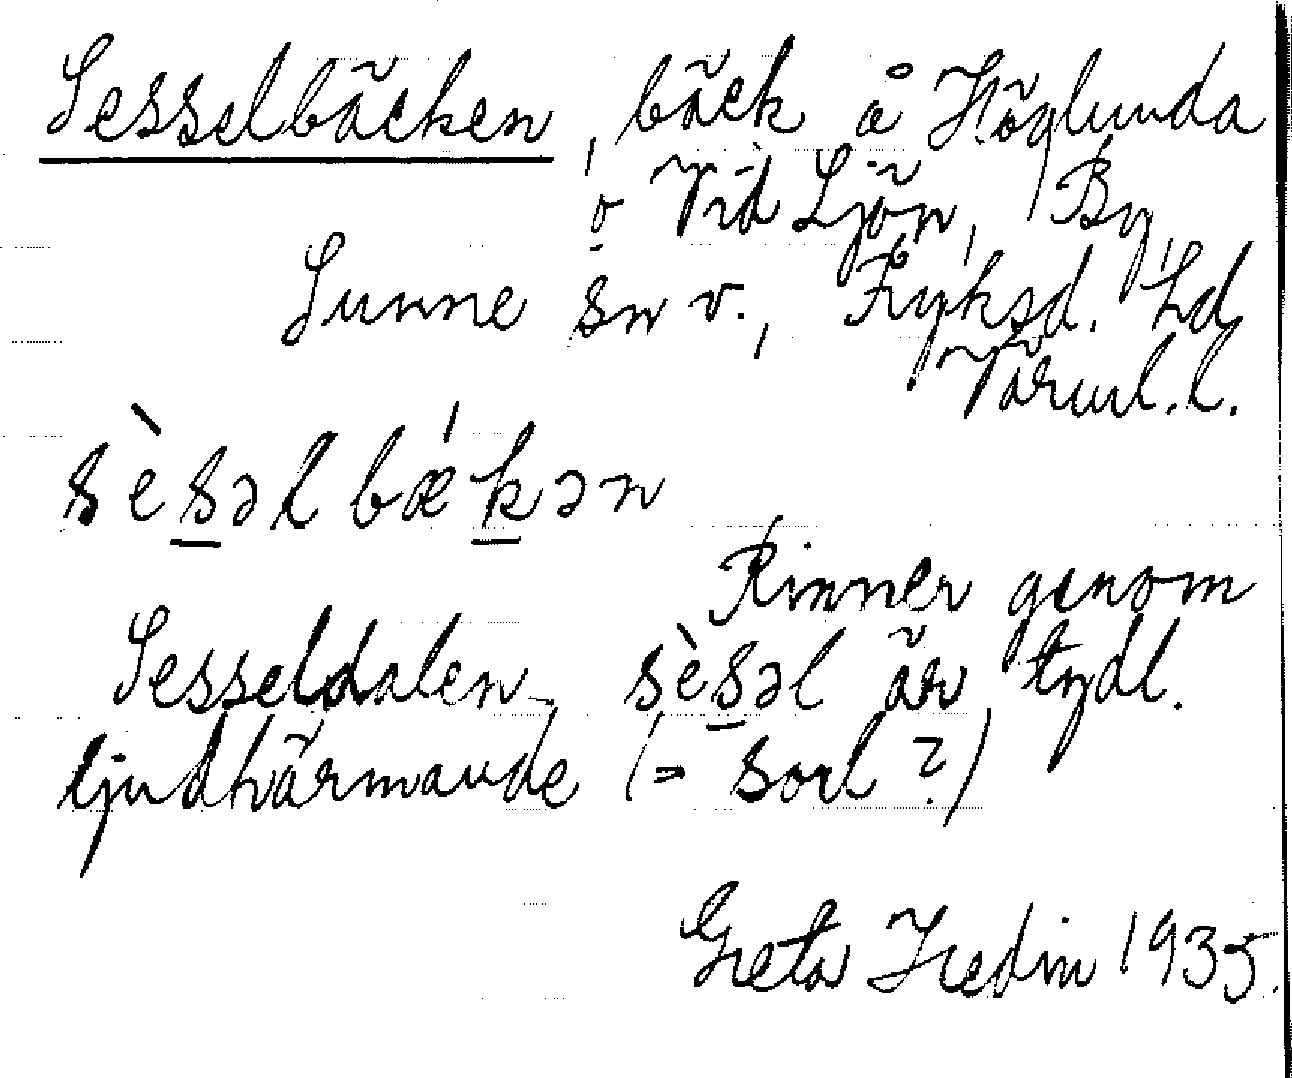 Sesselbäcken, bäck å Höglunda
o Vid Ljön, By,
Sunne sn v., Fryksd. hd
Värml. l.
sèsəlbǽkən
Rinner genom
Sesseldalen, sèsəl är tydl.
ljudhärmande (= sorl?)
Greta Hedin 1935.